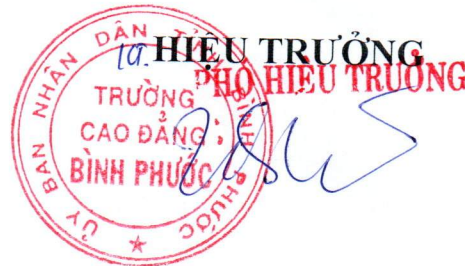 KT. HIỆU TRƯỞNG
PHÓ HIỆU TRƯỞNG
ỦY BAN NHÂN DÂN TỈNH BÌNH PHƯỚC
TRƯỜNG
CAO ĐẲNG
BÌNH PHƯỚC